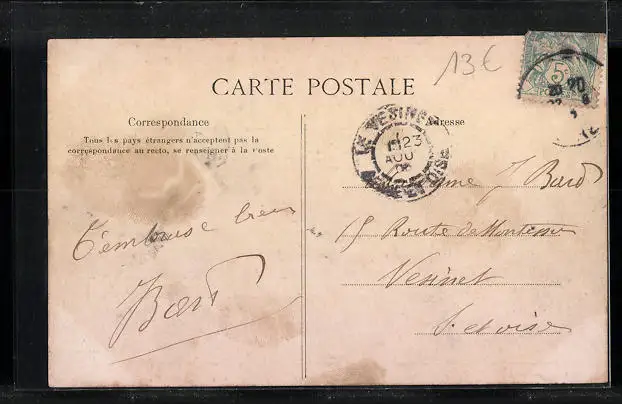 13 €
CARTE POSTALE
Correspondance
Adresse
Tous les pays étrangers n'acceptent pas la
correspondance au recto, se renseigner à la Poste
LE VESINET
23
AOU
SEINE-ET-OISE
5
20
J Bard
15 Route de Montesson
T'embrasse bien
Vesinet
Bard
S. et oise